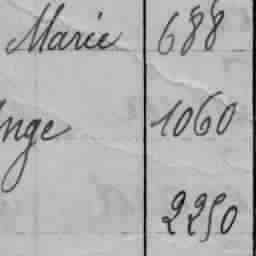 Marie 688
nge 1060
2250